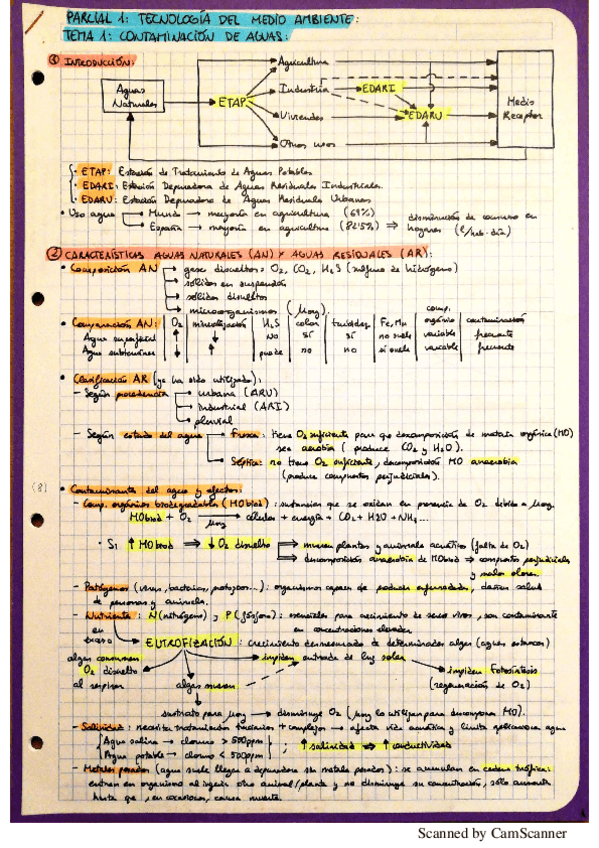 PARCIAL 1: TECNOLOGÍA DEL MEDIO AMBIENTE:
TEMA 1: CONTAMINACIÓN DE AGUAS:
① INTRODUCCIÓN:
Aguas Naturales
ETAP
Agricultura
Industria
EDARI
Viviendas
EDARU
Otros usos
Medio Receptor
· ETAP: Estación de Tratamiento de Aguas Potables
· EDARI: Estación Depuradora de Aguas Residuales Industriales.
· EDARU: Estación Depuradora de Aguas Residuales Urbanas
• Uso agua → Mundo → mayoría en agricultura (69%)
→ España → mayoría en agricultura (82'5%) ⇒ disminución de consumo en hogares (l/hab·día)
② CARACTERÍSTICAS AGUAS NATURALES (AN) Y AGUAS RESIDUALES (AR):
• Composición AN → gases disueltos: O2, CO2, H2S (sulfuro de hidrógeno)
→ sólidos en suspensión
→ sólidos disueltos
→ microorganismos (μorg).
• Comparación AN: | O2 | mineralización | H2S | color | turbidez | Fe, Mn | comp. orgánico | contaminación
Agua superficial | ↑ | ↓ | no | sí | sí | no suele | variable | frecuente
Agua subterránea | ↓ | ↑ | puede | no | no | sí suele | variable | frecuente
• Clasificación AR (ya ha sido utilizado):
- Según procedencia → urbana (ARU)
→ industrial (ARI)
→ pluvial
- Según estado del agua → Fresca: tiene O2 suficiente para que descomposición de materia orgánica (MO)
sea aerobia (produce CO2 y H2O).
→ Séptica: no tiene O2 suficiente, descomposición MO anaerobia
(produce compuestos perjudiciales).
(8)
• Contaminantes del agua y efectos:
- Comp. orgánicos biodegradables (MObiod): sustancias que se oxidan en presencia de O2 debido a μorg.
MObiod + O2 → μorg células + energía + CO2 + H2O + NH3 ...
• Si ↑ MObiod ⇒ ↓ O2 disuelto ⇒ mueren plantas y animales acuáticos (falta de O2)
⇒ descomposición anaerobia de MObiod → compuestos perjudiciales
y malos olores.
- Patógenos (virus, bacterias, protozoos...): organismos capaces de producir enfermedades, dañan salud
de personas y animales.
- Nutrientes: N (nitrógeno) y P (fósforo): esenciales para crecimiento de seres vivos, son contaminantes
en exceso
en concentraciones elevadas.
EUTROFIZACIÓN: crecimiento desmesurado de determinadas algas (aguas estancas)
algas consumen O2 disuelto al respirar
impiden entrada de luz solar
impiden Fotosíntesis (regeneración de O2)
algas mueren
sustrato para μorg → disminuye O2 (μorg lo utilizan para descomponer MO).
- Salinidad: necesita tratamientos terciarios + complejos → afecta vida acuática y limita aplicaciones agua
Agua salina → cloruros > 500ppm
Agua potable → cloruros < 500ppm
; ↑ salinidad ⇒ ↑ conductividad
- Metales pesados (agua suele llegar a depuradora sin metales pesados): se acumulan en cadena trófica:
entran en organismo al ingerir otro animal/planta y no disminuye su concentración, sólo aumenta
hasta que, en ocasiones, causa muerte.
Scanned by CamScanner